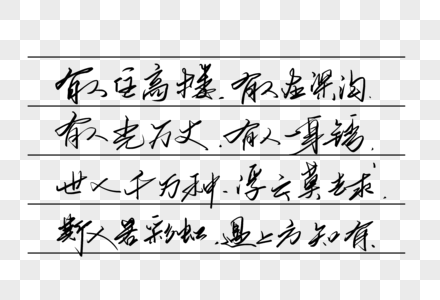 有人住高楼，有人在深沟，
有人光万丈，有人一身锈，
世人千万种，浮云莫去求，
斯人若彩虹，遇上方知有。